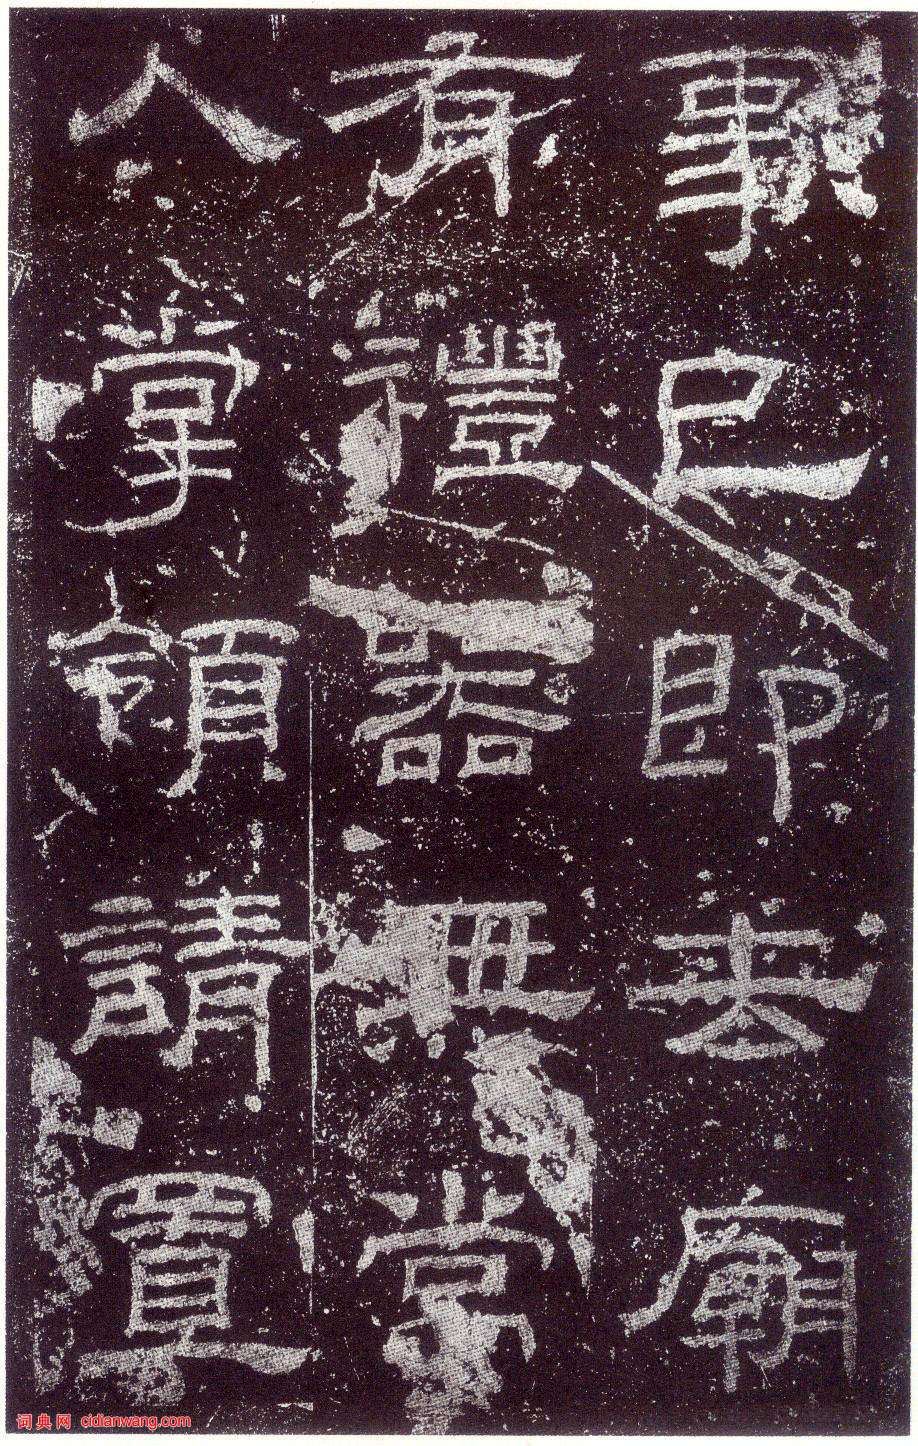 事已即去廟
有禮器無常
人掌領請置
词典网 cidianwang.com